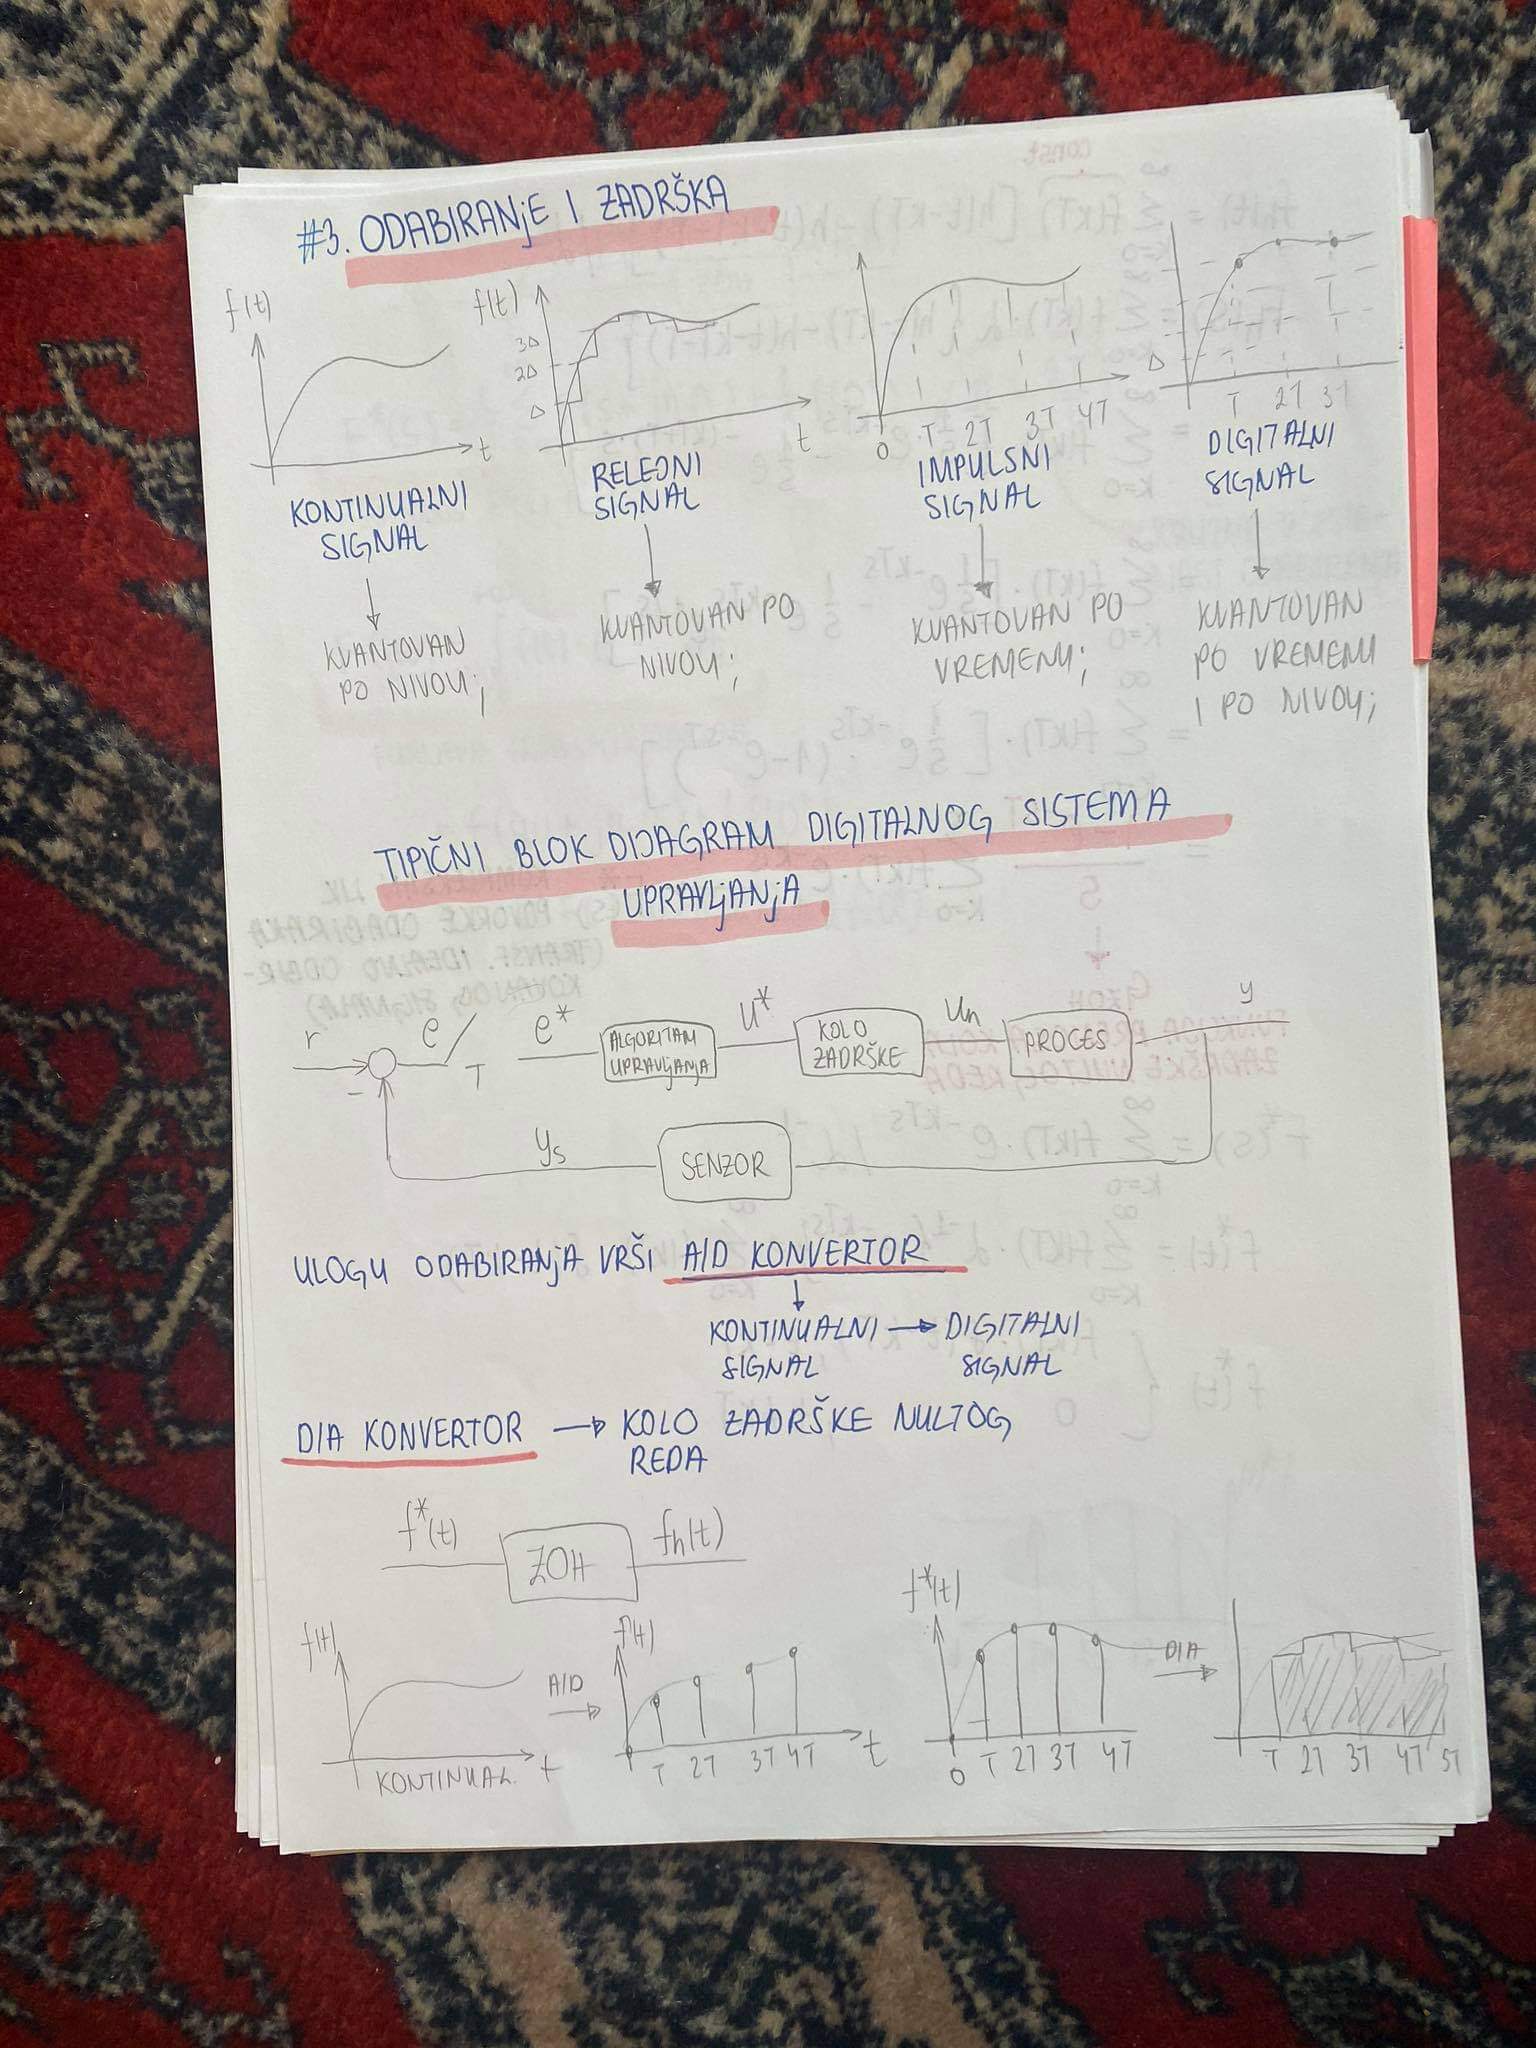 #3. ODABIRANjE I ZADRŠKA
f(t)
t
KONTINUALNI
SIGNAL
KVANTOVAN
PO NIVOU;
f(t)
3Δ
2Δ
Δ
t
RELEJNI
SIGNAL
KVANTOVAN PO
NIVOU;
0 T 2T 3T 4T
IMPULSNI
SIGNAL
KVANTOVAN PO
VREMENU;
Δ
T 2T 3T
DIGITALNI
SIGNAL
KVANTOVAN
PO VREMENU
I PO NIVOU;
TIPIČNI BLOK DIJAGRAM DIGITALNOG SISTEMA
UPRAVLjANjA
r
-
e
T
e*
ALGORITAM
UPRAVLjANjA
U*
KOLO
ZADRŠKE
Un
PROCES
y
ys
SENZOR
ULOGU ODABIRANjA VRŠI A/D KONVERTOR
KONTINUALNI → DIGITALNI
SIGNAL SIGNAL
D/A KONVERTOR → KOLO ZADRŠKE NULTOG
REDA
f*(t)
ZOH
fh(t)
f(t)
KONTINUAL. t
A/D
f(t)
T 2T 3T 4T t
f*(t)
0 T 2T 3T 4T
D/A
T 2T 3T 4T 5T